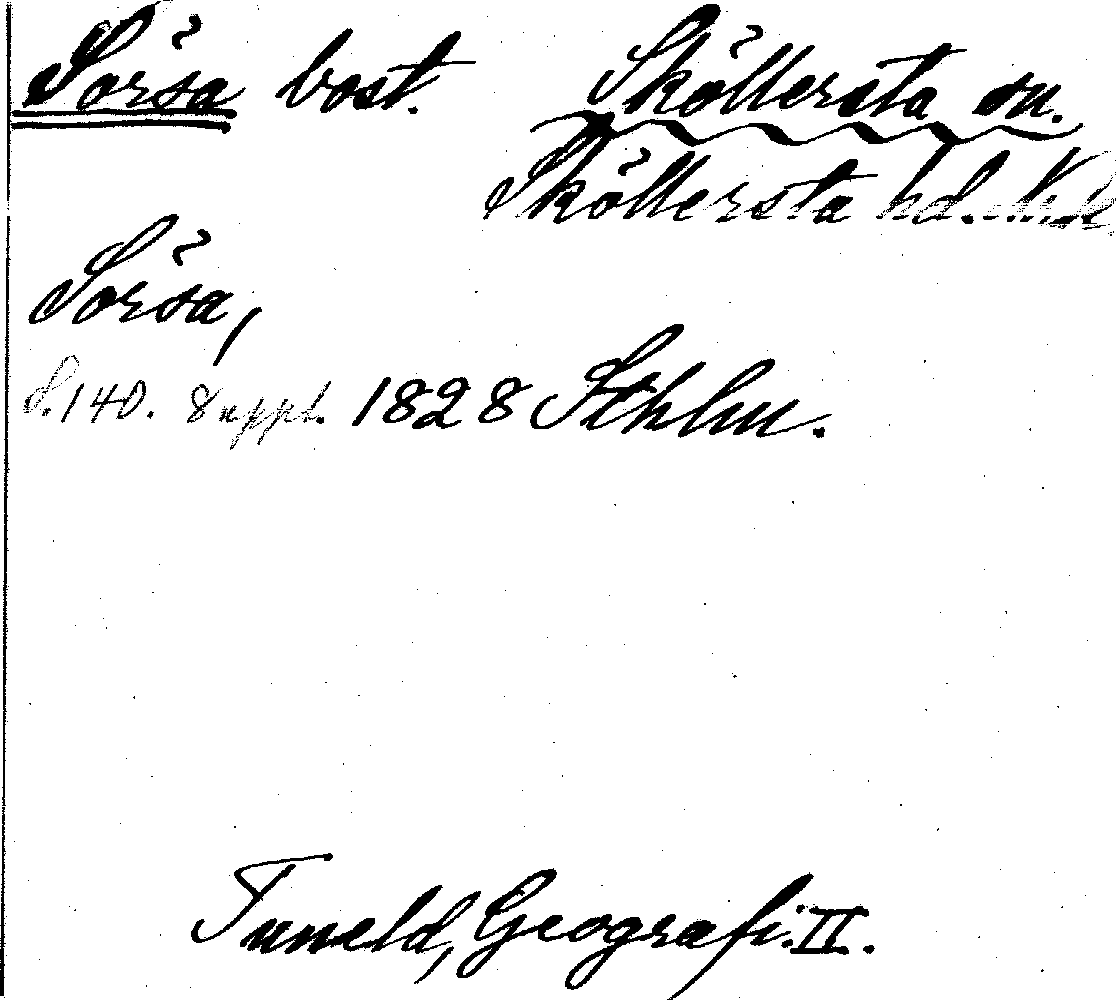 Sörsa bost. Sköllersta sn.
Sköllersta hd.
Sörsa,
S. 140. 8 uppl. 1828 Sthlm.
Tuneld, Geografi. II.